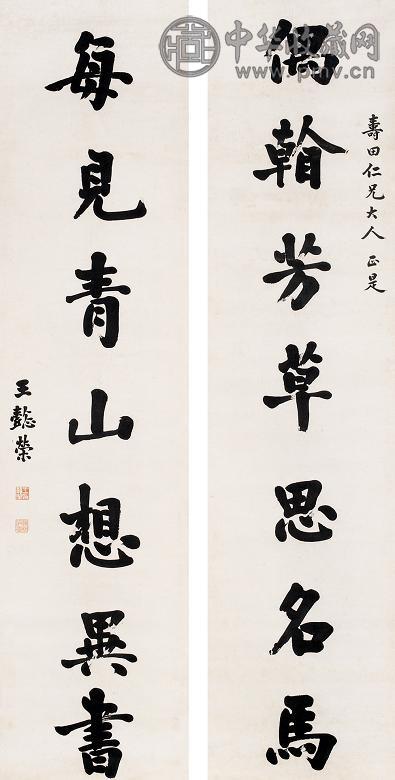 中华收藏网
www.pmv.cn
壽田仁兄大人正是
偶翰芳草思名馬
每見青山想異書
王懿榮